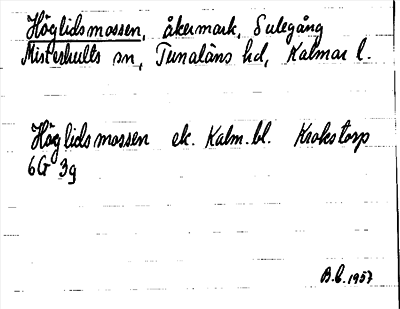 Höglidsmossen, åkermark, Sulegång
Misterhults sn, Tunaläns hd, Kalmar l.
Höglidsmossen ek. Kalm. bl. Krokstorp
6G 3g
B.C. 1957